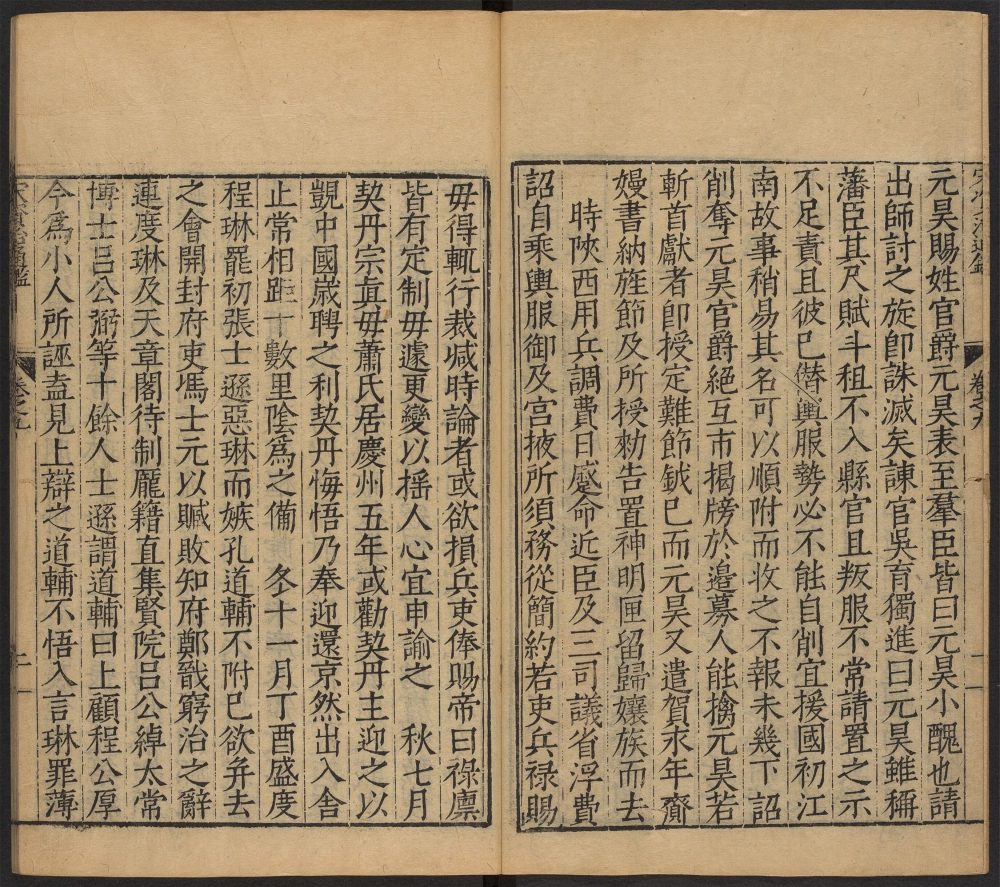 元昊賜姓官爵元昊表至羣臣皆曰元昊小醜也請
出師討之旋卽誅滅矣諫官吳育獨進曰元昊雖稱
藩臣其尺賦斗租不入縣官且叛服不常請置之示
不足責且彼已僭輿服勢必不能自削宜援國初江
南故事稍易其名可以順附而收之不報未幾下詔
削奪元昊官爵絕互市揭牓於邊募人能擒元昊若
斬首獻者卽授定難節鉞已而元昊又遣賀永年齎
嫚書納旌節及所授勑告置神明匣留歸孃族而去
時陜西用兵調費日蹙命近臣及三司議省浮費
詔自乘輿服御及宮掖所須務從簡約若吏兵祿賜
毋得輒行裁減時論者或欲損兵吏俸賜帝曰祿廩
皆有定制毋遽更變以搖人心宜申諭之 秋七月
契丹宗眞毋蕭氏居慶州五年或勸契丹主迎之以
覬中國歲聘之利契丹悔悟乃奉迎還京然出入舍
止常相距十數里陰爲之備 冬十一月丁酉盛度
程琳罷初張士遜惡琳而嫉孔道輔不附已欲弁去
之會開封府吏馮士元以贓敗知府鄭戩窮治之辭
連度琳及天章閣待制龐籍直集賢院呂公綽太常
博士呂公弼等十餘人士遜謂道輔曰上顧程公厚
今爲小人所誣盍見上辯之道輔不悟入言琳罪薄